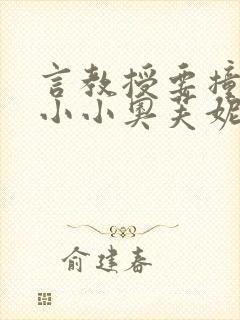 言教授要撞
小小奥芙妮
俞建春